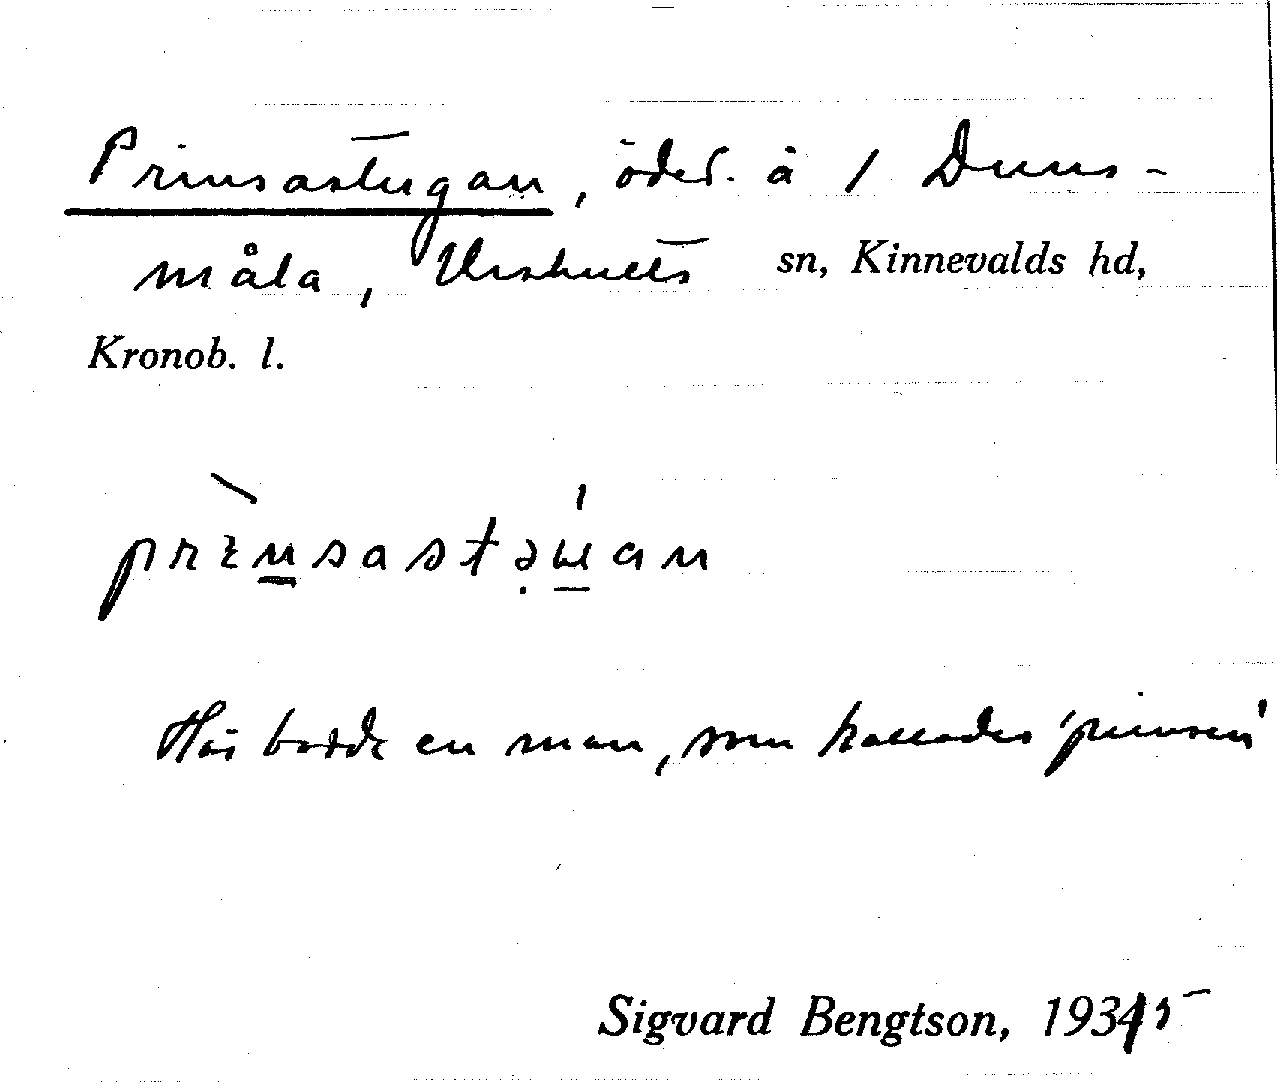 Prinsastugan, öded. å 1 Duns-
måla, Urshults sn, Kinnevalds hd,
Kronob. l.
Här bodde en man, som kallades 'prinsen'
Sigvard Bengtson, 1935